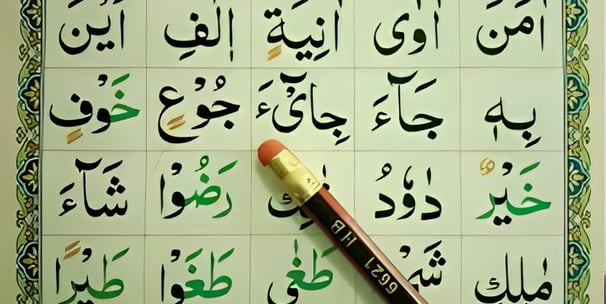 اٰمَنَ اٰوٰى اٰنِيَةٍ اٖلٰفِ اَيْنَ
بِهٖ جَآءَ جِایْٓءَ جُوْعٍ خَوْفٍ
خَيْرٌ دَاوٗدُ رَضُوْا شَآءَ
مٰلِكِ طَغٰى طَغَوْا طَيْرًا
6621 HB